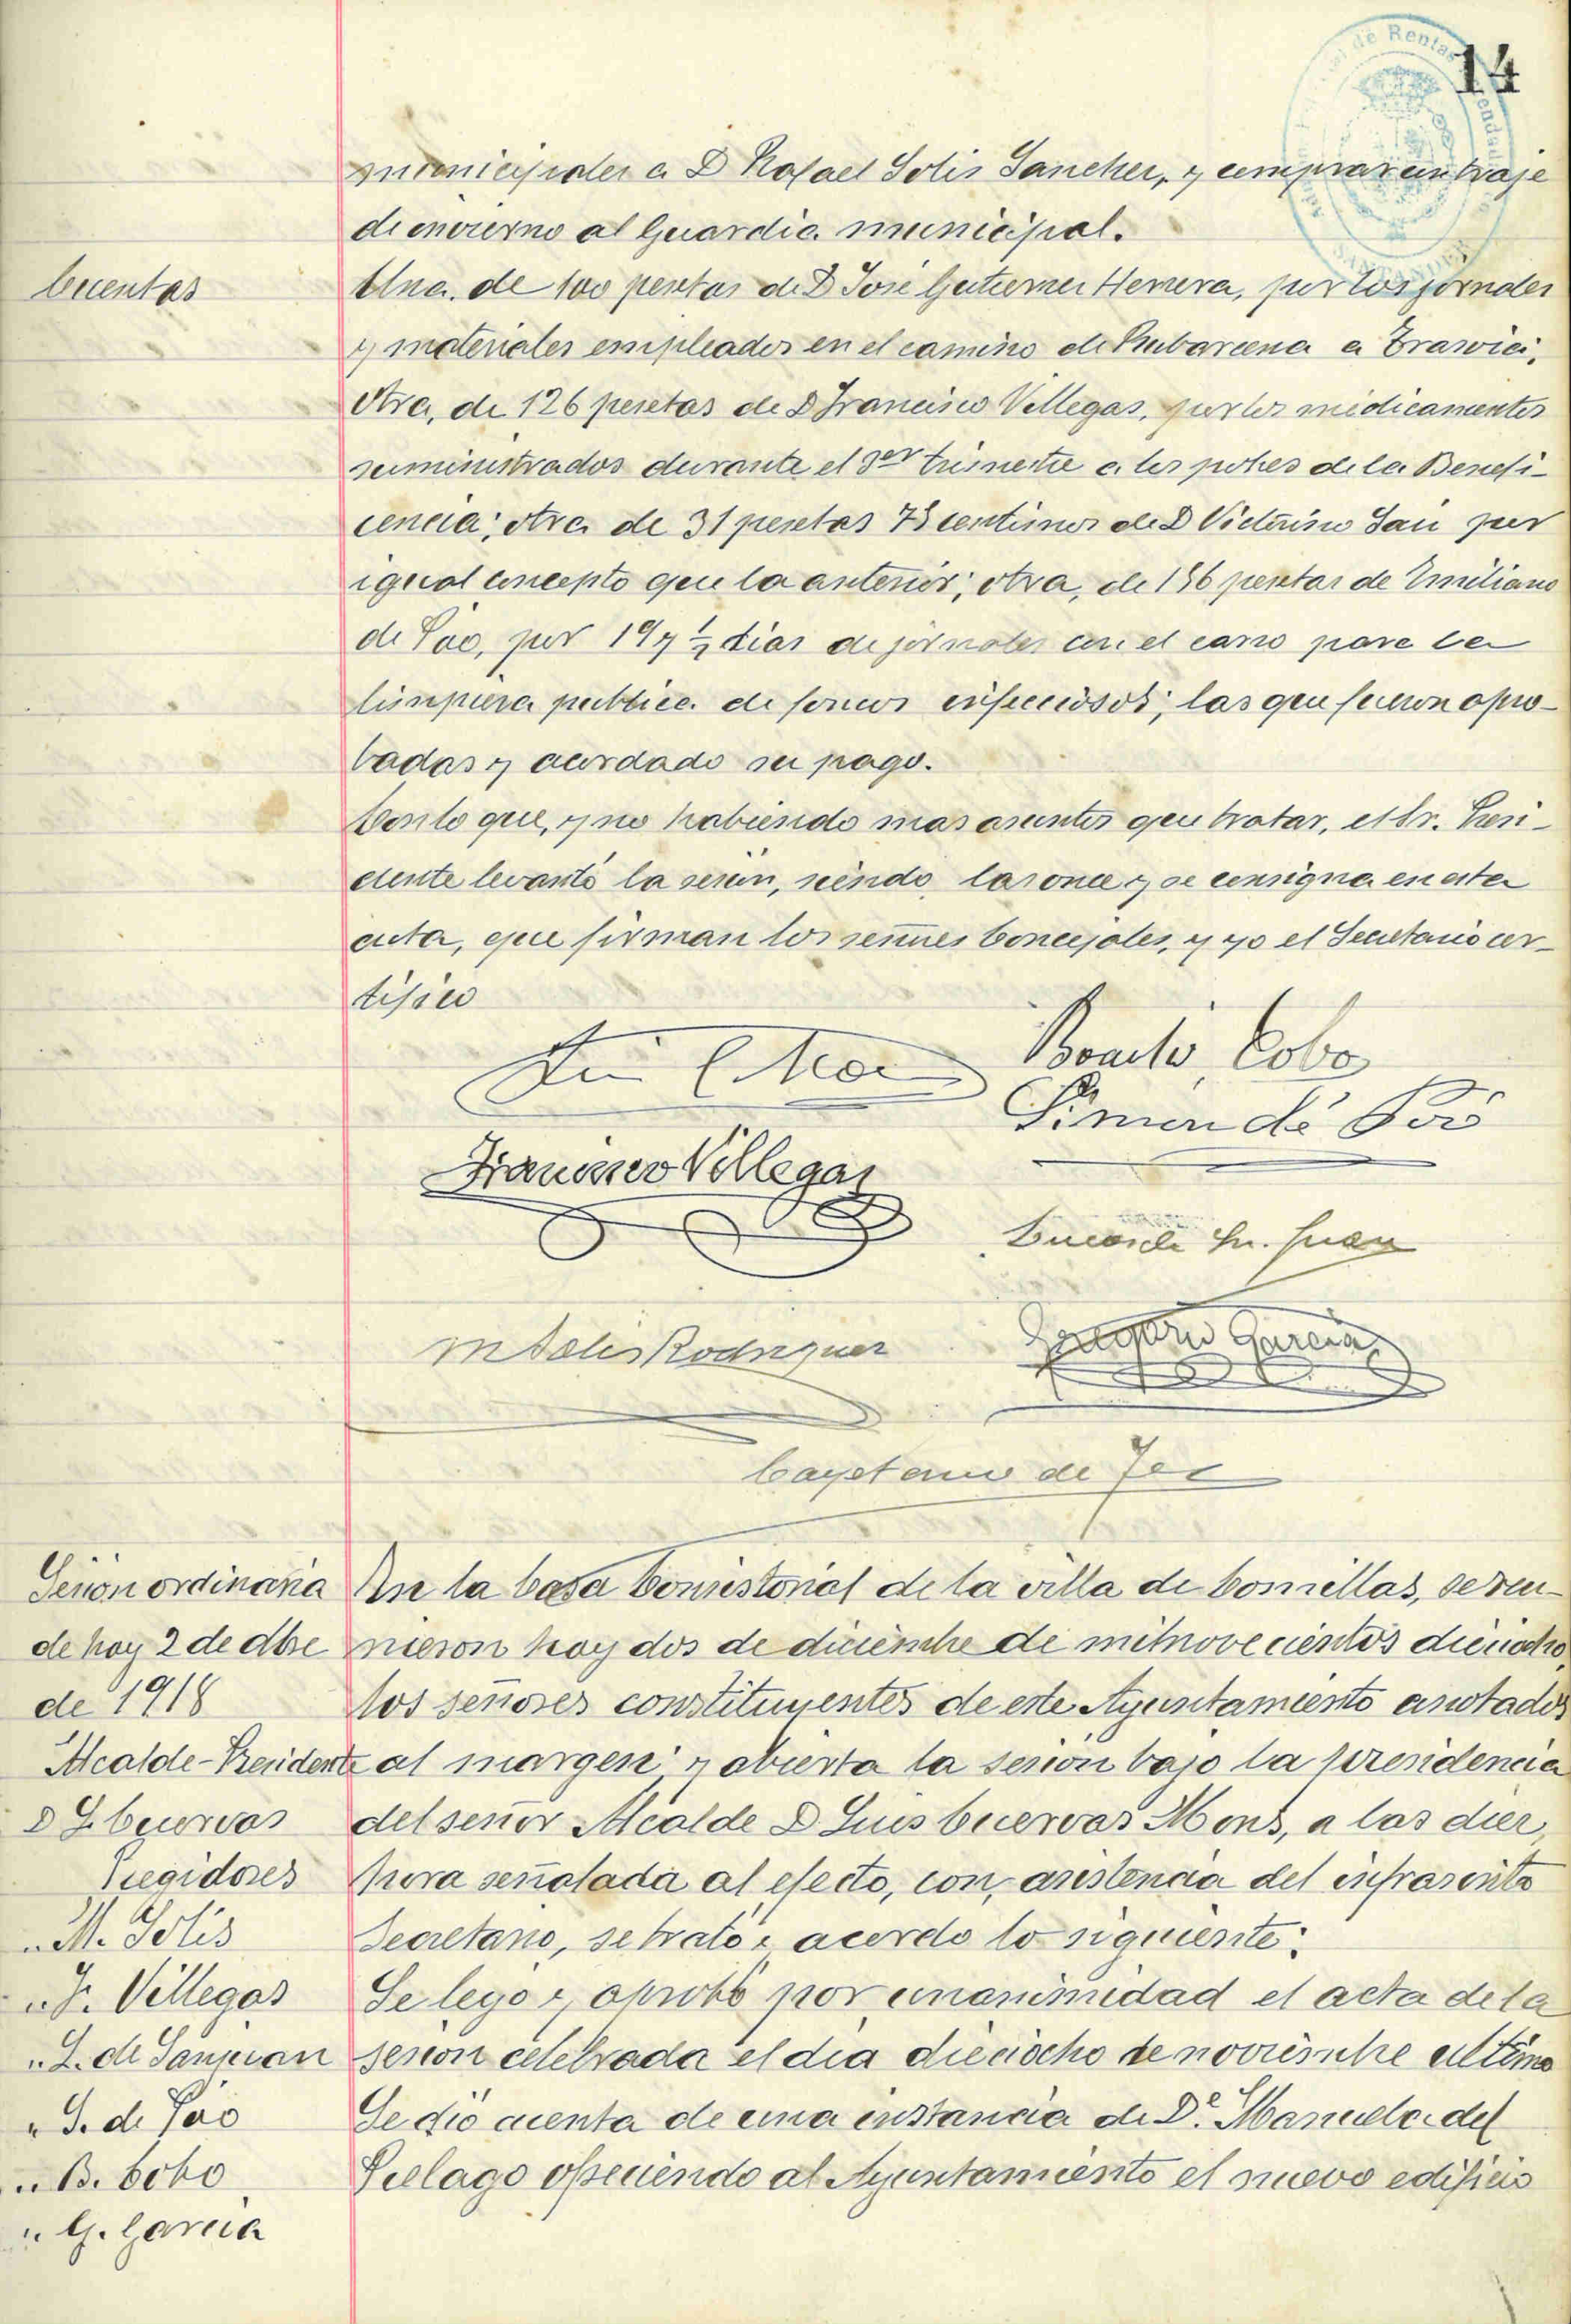 14
municipales a D Rafael Solis Sanchez, y comprar un traje
de invierno al Guardia municipal.
Cuentas
Una de 100 pesetas de D José Gutierrez Herrera, por los jornales
y materiales empleados en el camino de Rubarcena a Trasvia;
otra, de 126 pesetas de D Francisco Villegas, por los medicamentos
suministrados durante el 3er trimestre a los pobres de la Benefi-
cencia; otra de 31 pesetas 75 centimos de D Victorino San por
igual concepto que la anterior; otra, de 156 pesetas de Emiliano
de Póo, por 19 y ½ dias de jornales con el carro para la
limpieza publica de focos infecciosos; las que fueron apro-
badas y acordado su pago.
Con lo que, y no habiendo mas asuntos que tratar, el Sr. Presi-
dente levantó la sesión, siendo las once y se consigna en esta
acta, que firman los señores Concejales, y yo el Secretario cer-
tifico
Bonaitio Cobo
Simon de Póo
Francisco Villegas
Lucas de Sn. Juan
M Solis Rodriguez
Gregorio Garcia
Cayetano de
Sesion ordinaria
de hoy 2 de dbre
de 1918
Alcalde-Presidente
D L. Cuervas
Regidores
" M. Solis
" F. Villegas
" L. de Sanjuan
" S. de Póo
" B. Cobo
" G. Garcia
En la Casa Consistorial de la villa de Comillas, se reu-
nieron hoy dos de diciembre de mil novecientos dieciocho,
los señores constituyentes de este Ayuntamiento anotados
al margen; y abierta la sesion bajo la presidencia
del señor Alcalde D Luis Cuervas Mons, a las diez,
hora señalada al efecto, con asistencia del infrascrito
Secretario, se trató y acordo lo siguiente:
Se leyó y aprobó por unanimidad el acta de la
sesion celebrada el dia dieciocho de noviembre ultimo
Se dió cuenta de una instancia de Dª. Manuela del
Pielago ofreciendo al Ayuntamiento el nuevo edificio